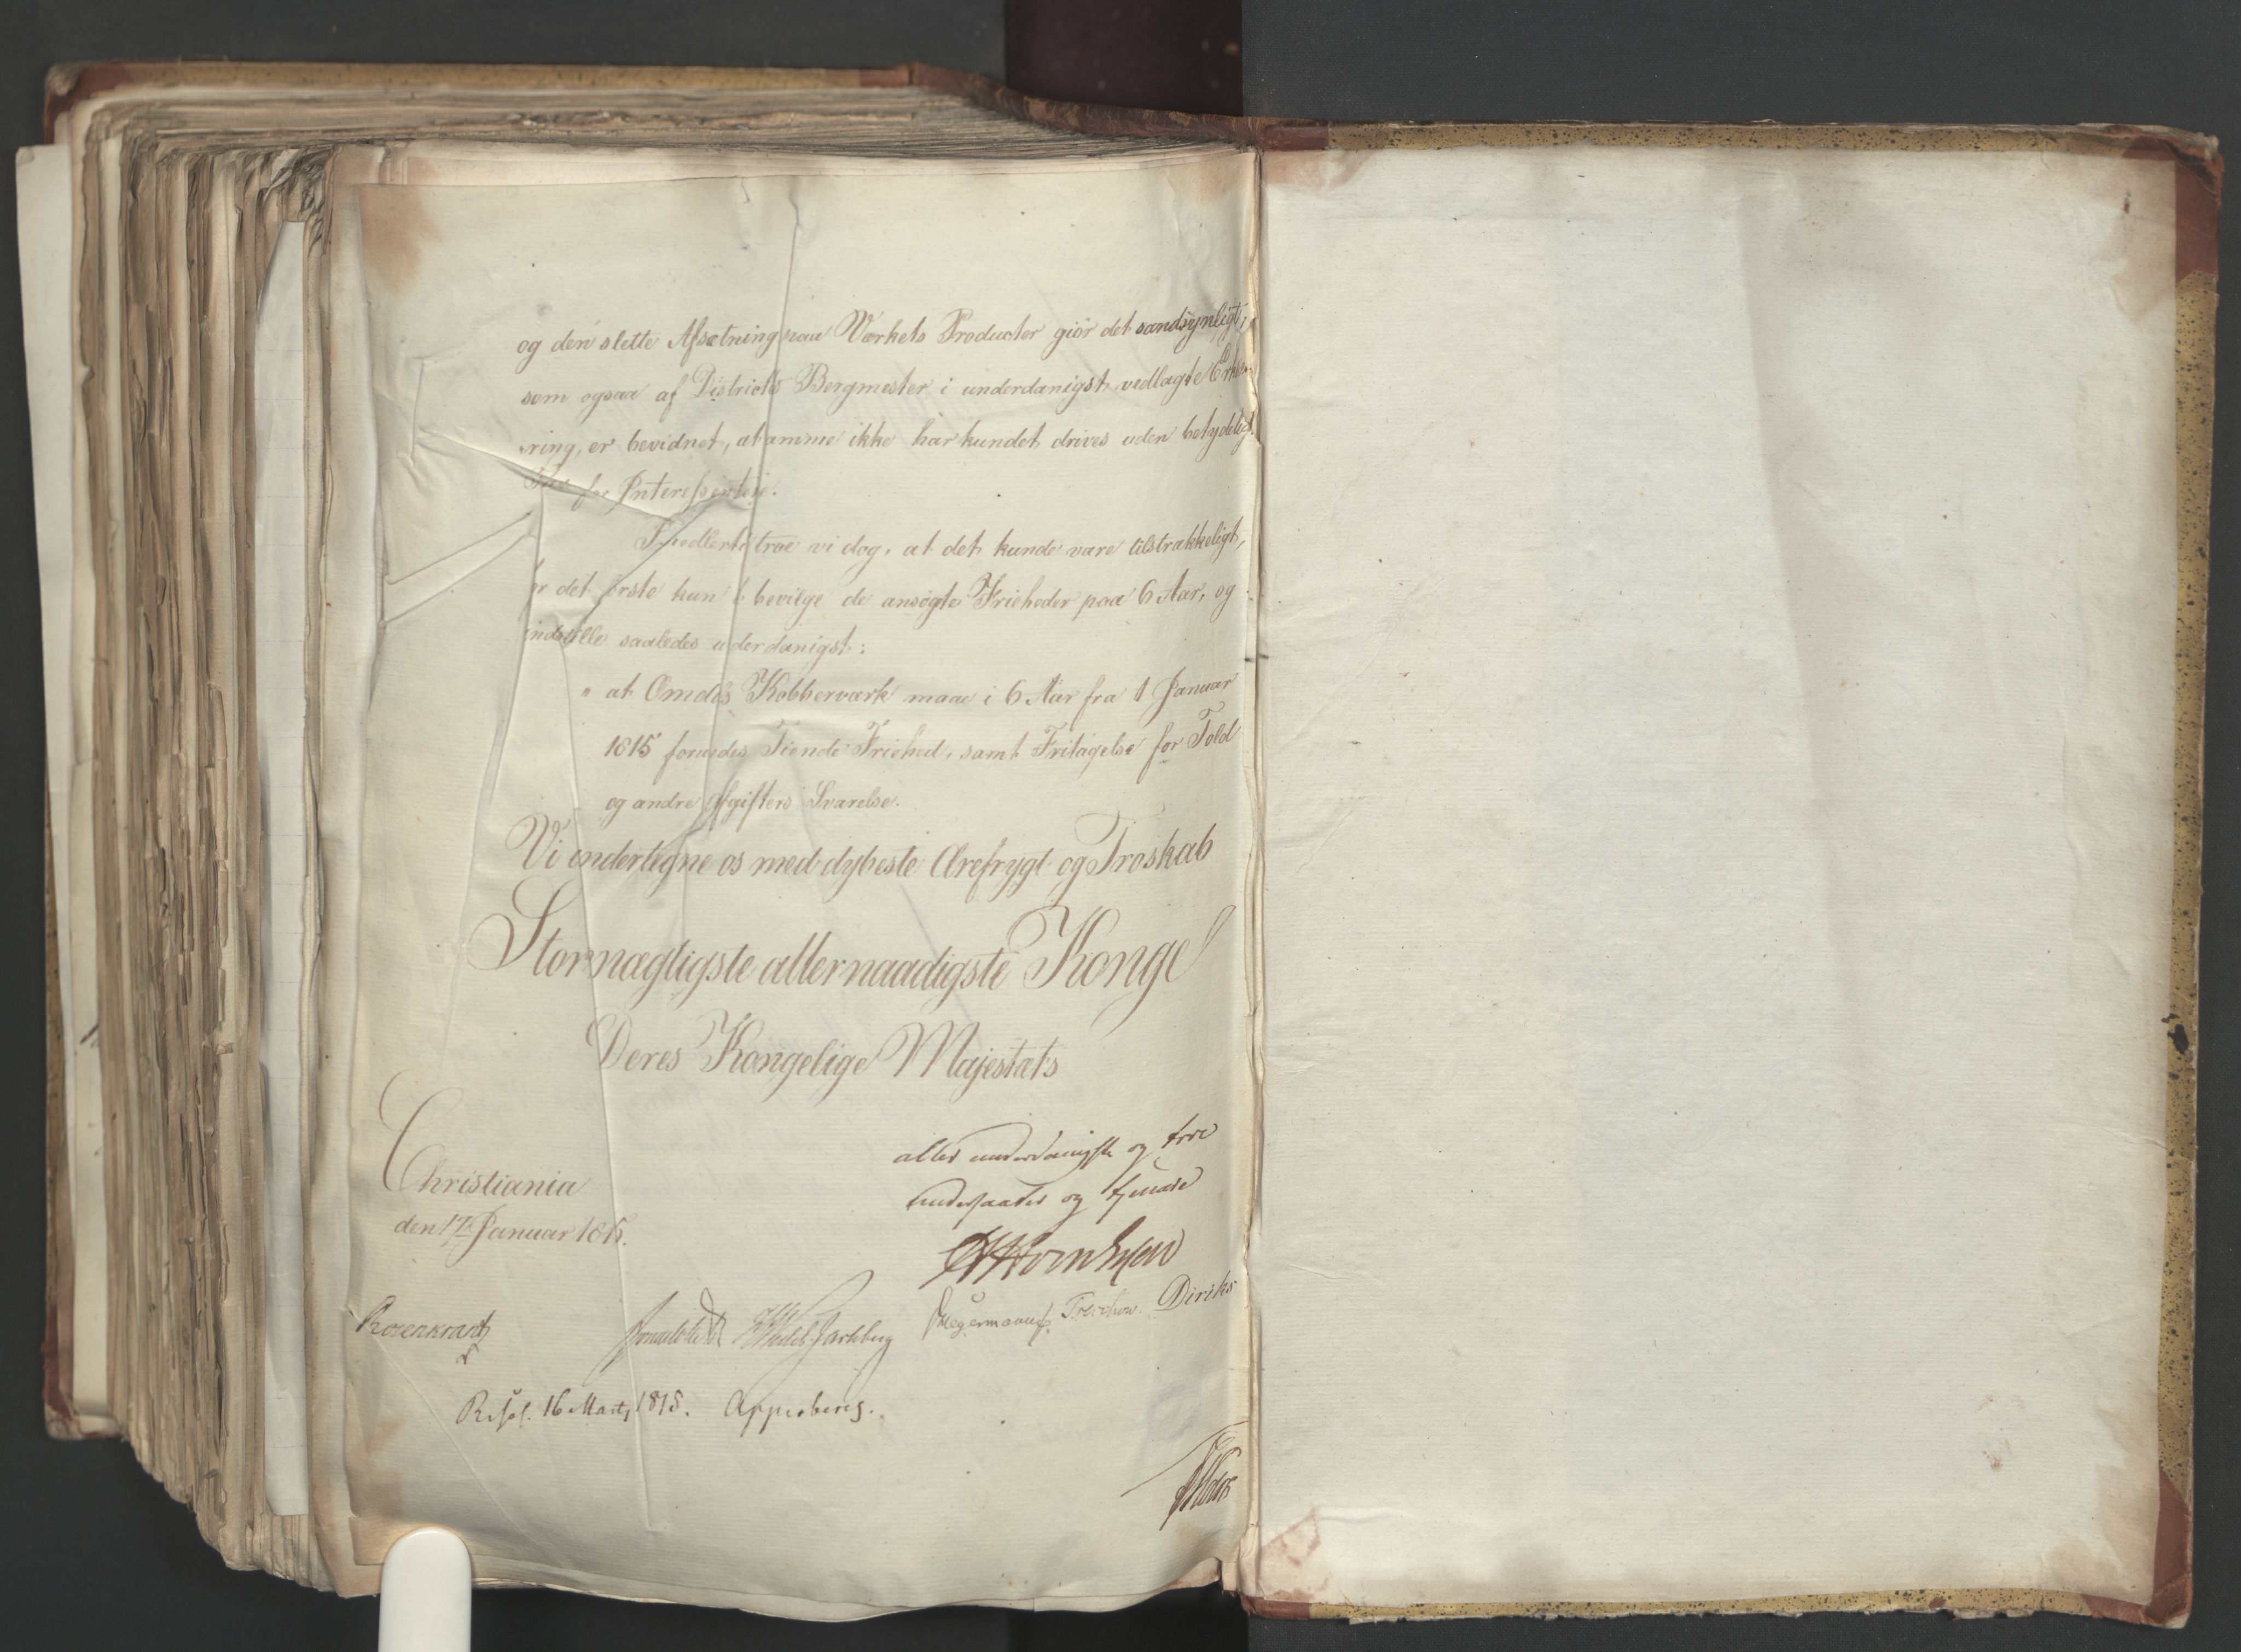 og den slette Afsætning paa Værkets Producter giør det sandsynligt,
som ogsaa af Districts Bergmester i underdanigst vedlagte Erklæ-
ring, er bevidnet, at amme ikke har kundet drives uden betydeligt
for Interessentere.
Imedlerti troe vi dog, at det kunde være tilstrækkeligt,
for det første kun t bevilge de ansøgte Frieheder paa 6 Aar, og
indstille saaledes u derdanigst:
" at Omdals Kobberværk maae i 6 Aar fra 1 Januar
1815 forundes Tiende Friehed, samt Fritagelse for Told
og andre Afgifters Svarelse.
Vi undertegne os med dybeste Ærefrygt og Troskab
Stormægtigste allernaadigste Konge
Deres Kongelige Majestæts
allerunderdanigste og troe
undersaatter og tjenere
Christiania
den 17 Januar 1815.
Sommerhjelm
Rosenkrantz
Wedel Jarlsberg
Hegermann
Treschow
Diriks
Resol. 16 Marts 1815. Approberes.